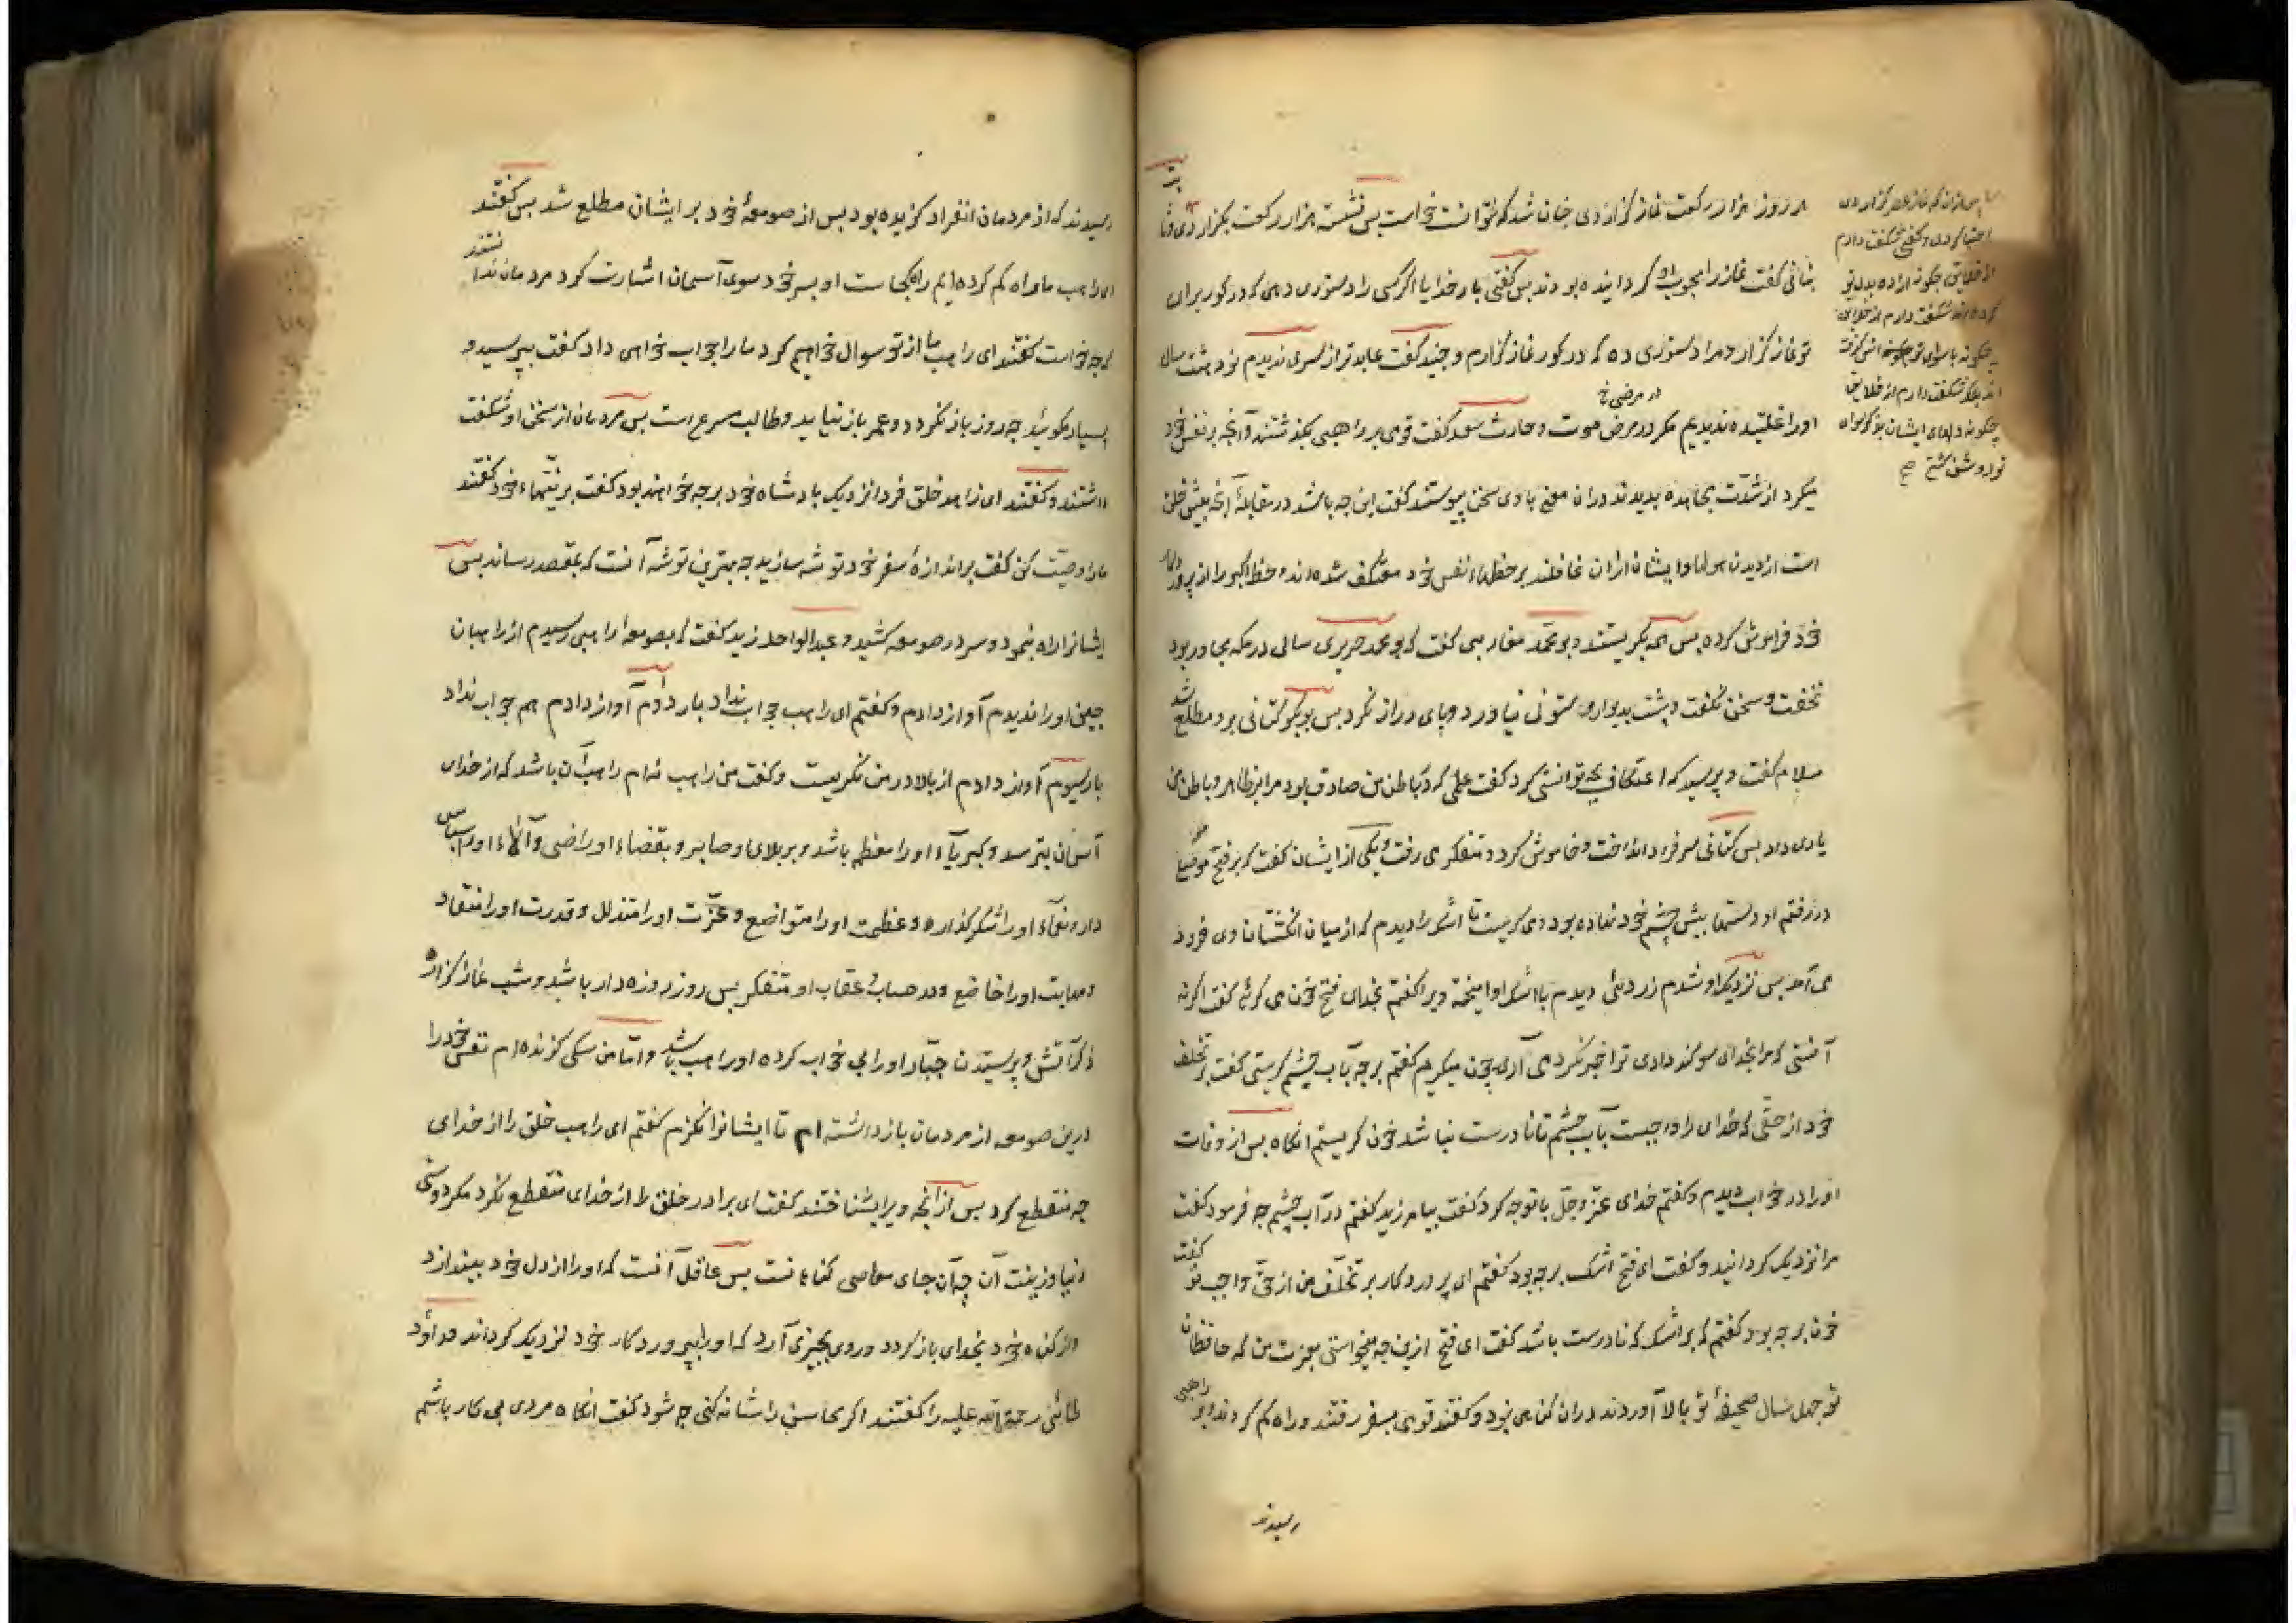 هر روز هزار رکعت نماز گزاردی چنان شد که نتوانست خواست بس نشسته هزار رکعت بکزاردی و ثابت
بنانی گفت نماز را محبوب او گردانیده بودند بس گفتی بار خدایا اگر کسی را دستوری دهی که در کور برای
تو نماز گزارد مرا دستوری ده که در کور نماز گزارم و جنید گفت عابدتر از سری ندیدم نود هشت سال
در مرض خ
او را غلتیده ندیدیم مکر در مرض موت و حارث سعد گفت قومی بر راهبی بگذشتند و آنجه بر نفس خود
میکرد از شدت مجاهده بدیدند در آن معنی با وی سخن پیوستند گفت این چه باشد در مقابله آنچه پیش خلق
است از دیدن هولها و ایشان از آن غافلند بر حظهاء نفس خود معتکف شده اند و حظ اکبر را از پروردکار
خود فراموش کرده بس همه بکریستند و بو محمد مغازلی گفت که بو محمد جریری سالی در مکه مجاور بود
نخفت و سخن نگفت و پشت بدیوار و ستونی نیاورد و پای دراز نکرد بس بوبکر کتانی برو مطلع شد
سلام گفت و پرسید که اعتکاف بچه توانستی کرد گفت علمی که در باطن من صادق بود مرا بر ظاهر و باطن من
یاری داد بس کتانی سر فرو انداخت و خاموش کرد و متفکر می رفت و یکی از ایشان گفت که بر فتح موصلی
در رفتم او دستها پیش چشم خود نهاده بود و می کریست تا اشک را دیدم که از میان انگشتان وی فرود
می آمد بس نزدیک او شدم زردیی دیدم با اشک او آمیخته ویرا گفتم بخدای فتح خون می کریی گفت اگر نه
آنستی که مرا بخدای سوگند دادی ترا خبر نکردمی آری خون میکریم گفتم بر چه آب چشم کریستی گفت بر تخلف
خود از حقی که خدای را واجبست بآب چشم تا نادرست نباشد خون کریستم آنکاه بس از وفات
او را در خواب دیدم و گفتم خدای عز و جل با تو چه کرد گفت بیامرزید گفتم در آب چشم چه فرمود گفت
مرا نزدیک گردانید و گفت ای فتح اشک بر چه بود گفتم ای پروردکار بر تخلف من از حق واجب تو گفت
خون بر چه بود گفتم که بر اشک که نادرست باشد گفت ای فتح ازین چه میخواستی بعزت من که حافظان
تو چهل سال صحیفه تو بالا آوردند در آن گناهی نبود و گفتند قومی بسفر رفتند و راه کم کردند بر راهبی
رسیدند
احتیاط کردی و گفتی شگفت دارم
از خلایق چگونه اراده بدل تو
کرده اند شگفت دارم از خلایق
چگونه بسوای تو انس گرفته
اند بلکه شگفت دارم از خلایق
چگونه دلهای ایشان بذکر سوای
تو روشن گشته صح
رسیدند که از مردمان انفراد کزیده بود بس از صومعه خود بر ایشان مطلع شد بس گفتند
ای راهب ما راه کم کرده ایم راه کجاست او بسر خود سوی آسمان اشارت کرد مردمان ندانستند
که چه خواست گفتند ای راهب ما از تو سوال خواهیم کرد ما را جواب خواهی داد گفت بپرسید و
بسیار مگوئید چه روز باز نگردد و عمر باز نیاید و طالب مسرع است بس مردمان از سخن او شگفت
داشتند و گفتند ای زاهد خلق فردا نزدیک بادشاه خود بر چه خواهند بود گفت بر نیتهاء خود گفتند
ما را وصیت کن گفت بر اندازه سفر خود توشه سازید چه بهترین توشه آنست که بمقصد رساند بس
ایشانرا راه بنمود و سر در صومعه کشید و عبد الواحد زید گفت که بصومعه راهبی رسیدم از راهبان
چین او را ندیدم آواز دادم و گفتم ای راهب جواب نداد بار دوم آواز دادم هم جواب نداد
بار سیوم آواز دادم از بالا در من نگریست و گفت من راهب نه ام راهب آن باشد که از خدای
آسمان بترسد و کبریاء او را معظم باشد و بر بلای او صابر و بقضاء او راضی و آلاء او را سپاس
دار و نعماء او را شکر گذارد و عظمت او را متواضع و عزت او را متذلل و قدرت او را منقاد
و مهابت او را خاضع و در حساب و عقاب او متفکر بس روز روزه دار باشد و شب نماز گزار
ذکر آتش و پرسیدن جبار او را بی خواب کرده او راهب باشد و اما من سگی گزنده ام نفس خود را
درین صومعه از مردمان باز داشته ام تا ایشانرا نگزم گفتم ای راهب خلق را از خدای
چه منقطع کرد بس از آنچه ویرا بشناختند گفت ای برادر خلق را از خدای منقطع نکرد مکر دوستی
دنیا و زینت آن چه آن جای معاصی گناهانست بس عاقل آنست که او را از دل خود بیندازد
و از گناه خود بخدای باز گردد و روی بچیزی آرد که او را بپروردگار خود نزدیک گرداند و داؤد
طائی رحمة الله علیه را گفتند اگر محاسن را شانه کنی چه شود گفت آنکاه مردی بی کار باشم